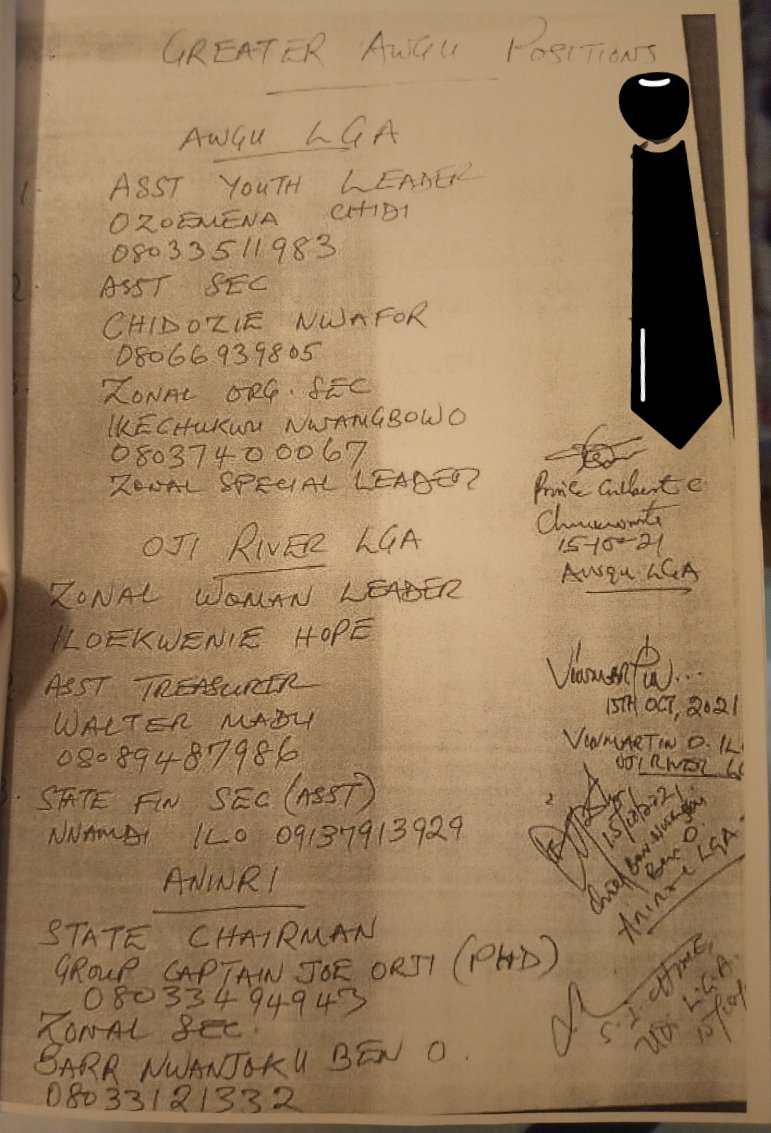 GREATER AWGU POSITIONS
AWGU LGA
1.
ASST YOUTH LEADER
OZOEMENA CHIDI
08033511983
2
ASST SEC
CHIDOZIE NWAFOR
08066939805
3.
ZONAL ORG. SEC
IKECHUKWU NWANGBOWO
08037400067
ZONAL SPECIAL LEADER
OJI RIVER LGA
ZONAL WOMAN LEADER
ILOEKWENIE HOPE
ASST TREASURER
WALTER MADU
08089487986
STATE FIN SEC (ASST)
NNAMDI ILO 09137913929
ANINRI
STATE CHAIRMAN
GROUP CAPTAIN JOE ORJI (PHD)
08033494943
ZONAL SEC.
BARR NWANJOKU BEN O.
08033121332
Prince
15-10-21
Awgu LGA
VINMARTIN...
15TH OCT, 2021
VINMARTIN O. IL
OJI RIVER
15/10/2021
Chief Barr
Ben O.
Aninri LGA
S. I. CHIME,
UDI L.G.A.